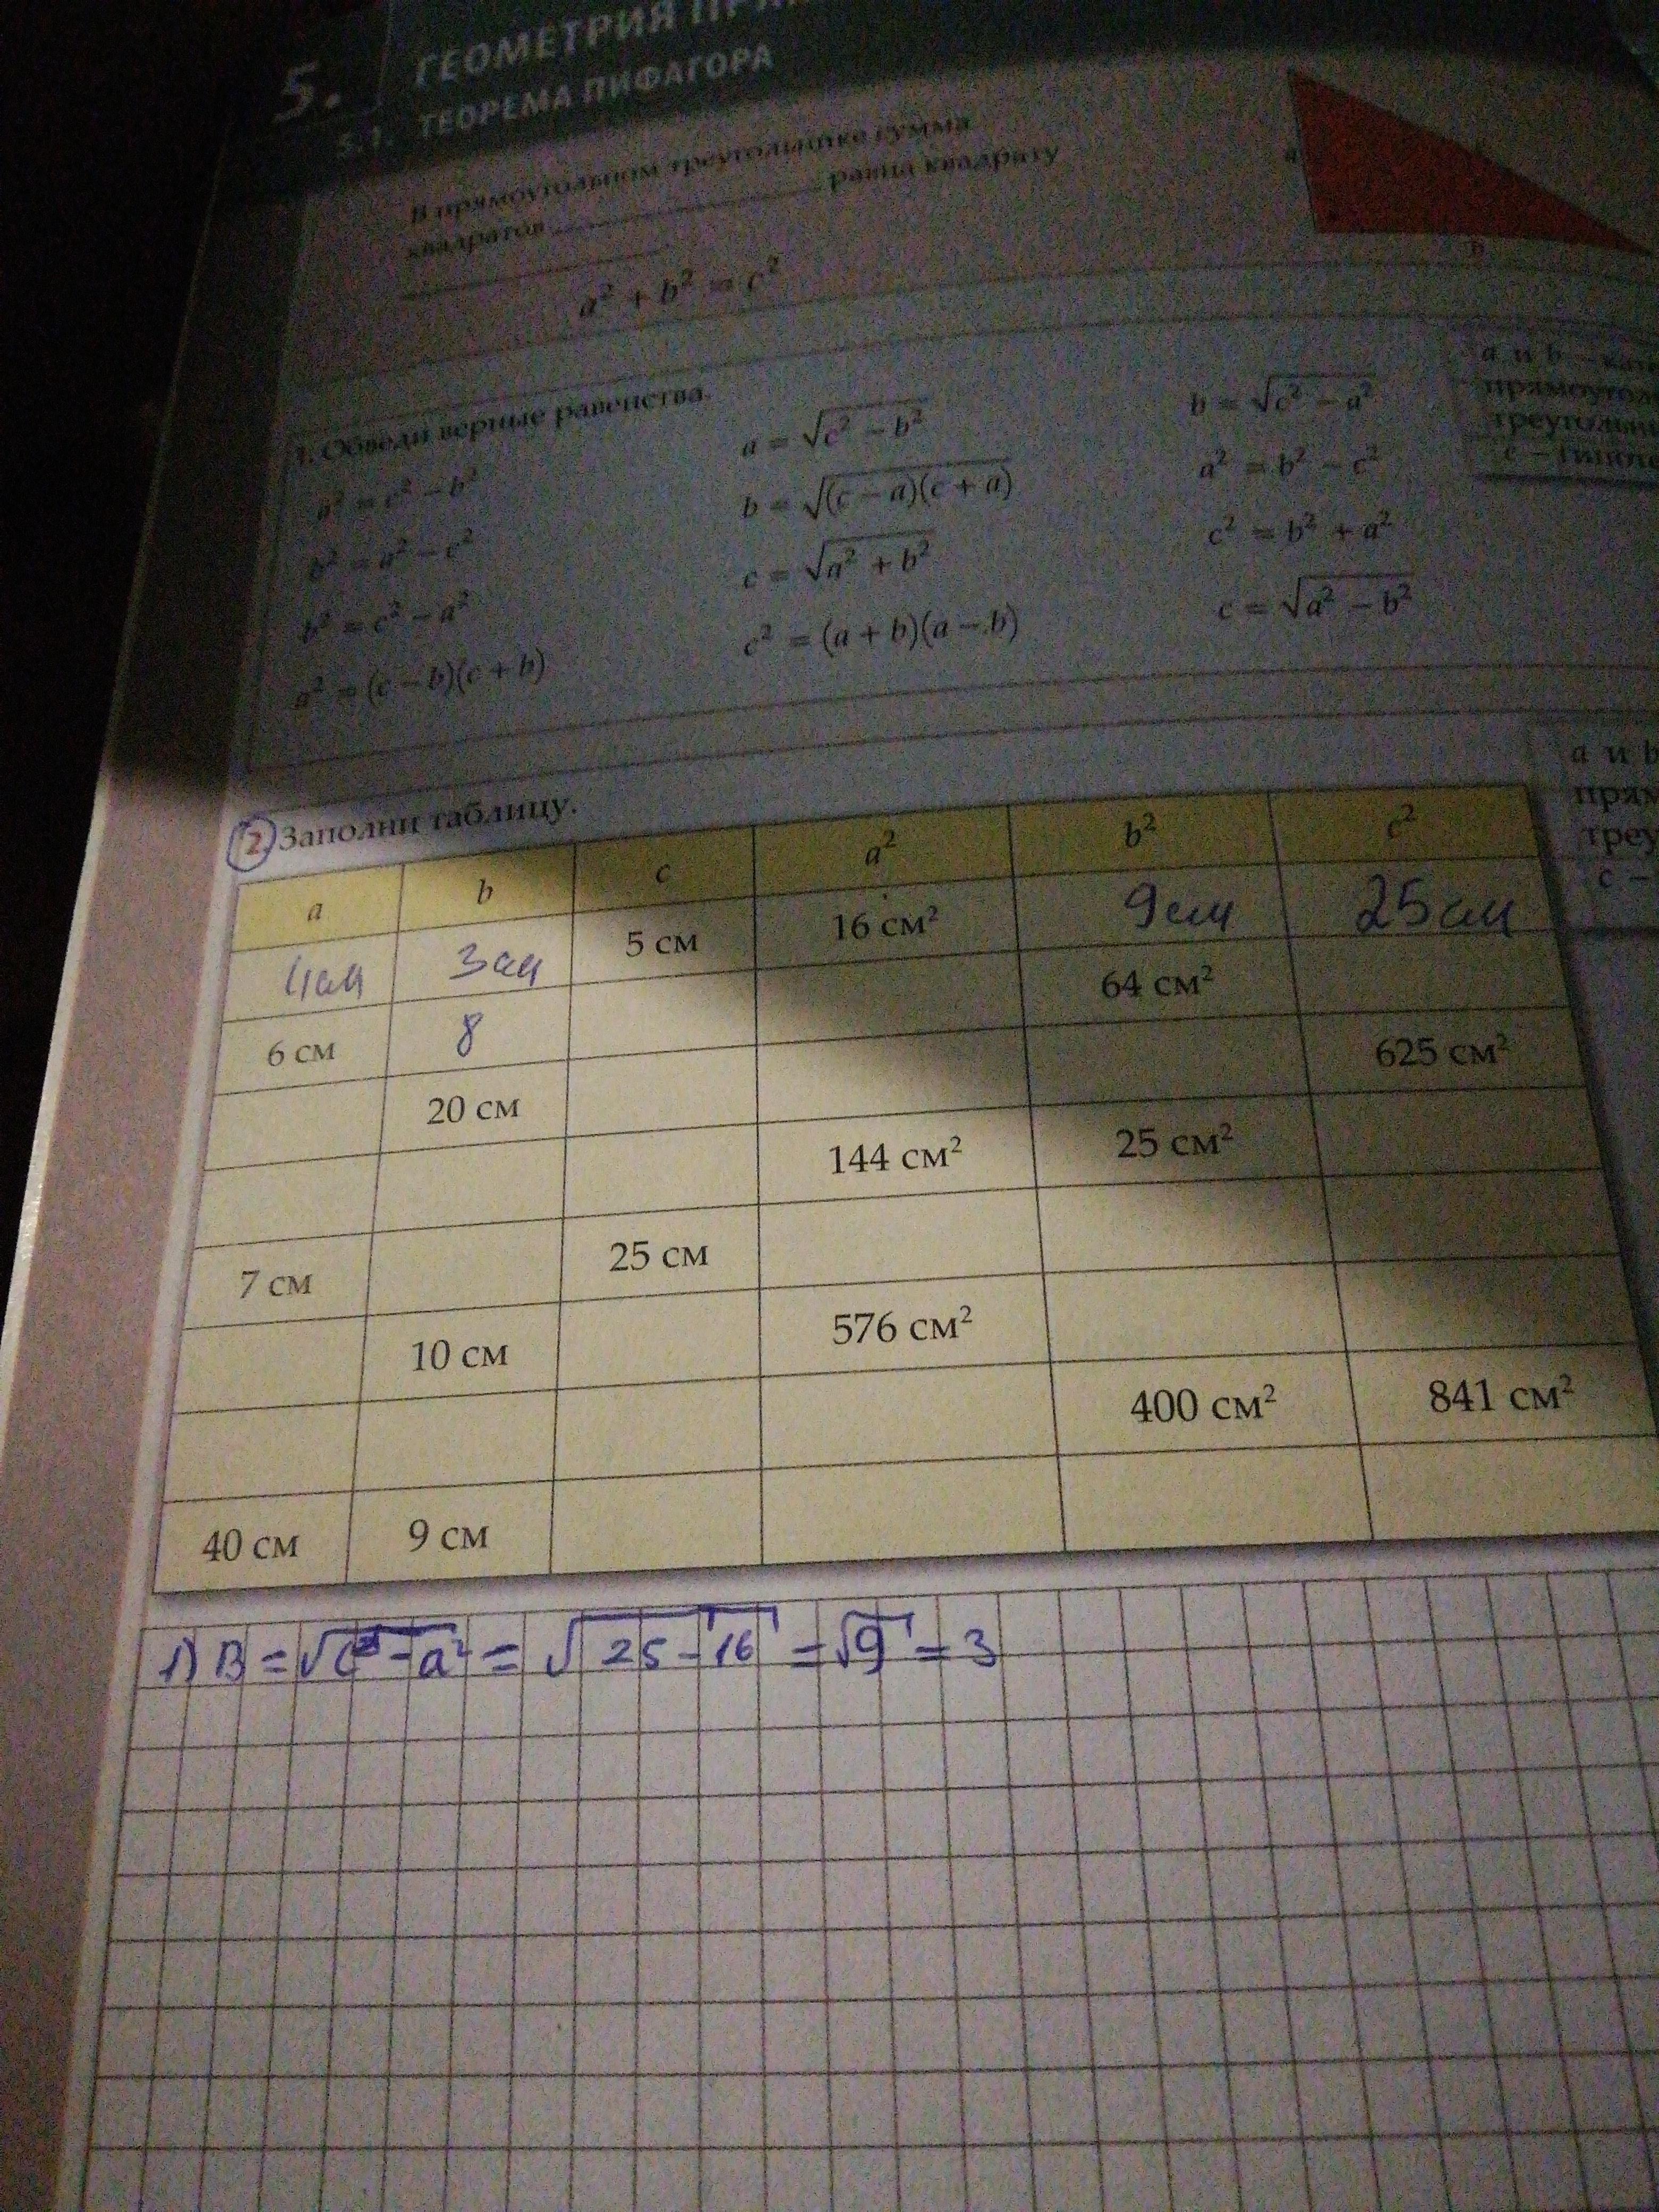 5. ГЕОМЕТРИЯ
5.1. ТЕОРЕМА ПИФАГОРА
В прямоугольном треугольнике сумма
квадратов ____ равна квадрату
a² + b² = c²
a
b
1. Обведи верные равенства.
a² = c² − b²
b² = a² − c²
b² = c² − a²
a² = (c − b)(c + b)
a = √(c² − b²)
b = √((c − a)(c + a))
c = √(a² + b²)
c² = (a + b)(a − b)
b = √(c² − a²)
a² = b² − c²
c² = b² + a²
c = √(a² − b²)
a и b –
c –
2. Заполни таблицу.
a b c a² b² c²
4см 3см 5 см 16 см² 9см 25см
6 см 8 64 см²
20 см 625 см²
144 см² 25 см²
7 см 25 см
10 см 576 см²
400 см² 841 см²
40 см 9 см
a и b
c –
1) B = √c² − a² = √25 − 16 = √9 = 3